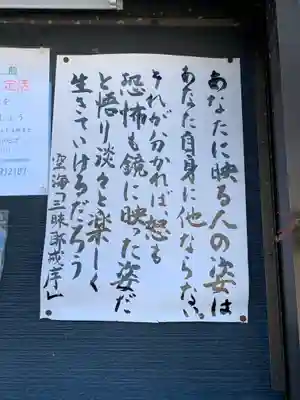 あなたに映る人の姿は
あなた自身に他ならない。
それが分かれば怒る
恐怖も鏡に映った姿だ
と悟り淡々と楽しく
生きていけるだろう
空海「三昧耶戒序」
前
定活